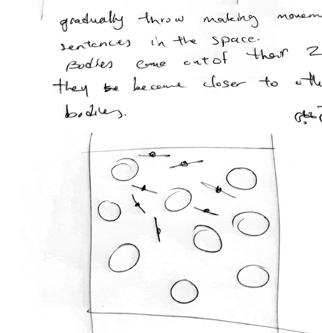 gradually throw making movem
sentences in the space.
Bodies come out of their 2
they become closer to othe
bodies.